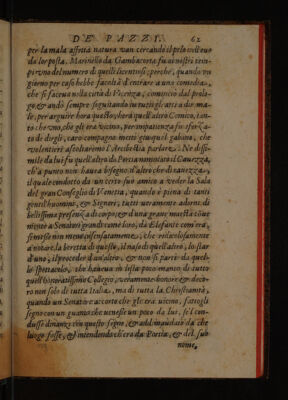 DE PAZZI. 62
per la mala affetta natura van cercando il pelo nell'euo
da lor posta. Marinello da Gambacorta fu a' nostri tem
pi vno del numero di questi licentiosi, perche, quando vn
giorno per caso hebbe facoltà d'entrare a vna comedia,
che si faceua nella città di Vicenza, cominciò dal prolo-
go, & andò sempre seguitando in tutti gli atti a dir ma-
le, per arguire hora questo, hora quell'altro Comico, tan
to che vno, che gli era vicino, per impatienza fu sforza-
to di dirgli, caro compagno metti giu quel gabano, che
volentieri ascoltaremo l'Arcibestia parlare. Ne dissi-
mile da lui fu quell'altro da Porcia nominato il Cauezza,
ch'a punto non haueua bisogno d'altro che di cauezza,
il quale condotto da vn certo suo amico a veder la Sala
del gran Conseglio di Venetia, quando è piena di tanti
gentil'huomini, & Signori, tutti veramente adorni di
bellissima presenza di corpo, & d'una graue maestà come
mente a Senatori grandi come loro, da Elefante com'era,
si mise non men che insensatamente, che ridicolosamente
a notare, la beretta di questo, il naso di quell'altro, lo star
d'uno, il proceder d'un'altro, & non si partì da quel-
lo spettacolo, che haueua in testa poco manco di tutto
quell'honoratissimo Collegio, veramente honore & deco-
ro non solo di tutta Italia, ma di tutta la Christianità,
quando un Senatore accorto che gli era vicino, fattogli
segno con un guanto che venesse un poco da lui, se'l con
dusse dinanzi con questo segno, & addimandatò da che
luogo fosse, & intendendo ch'era da Porcia, & del suo
nome,